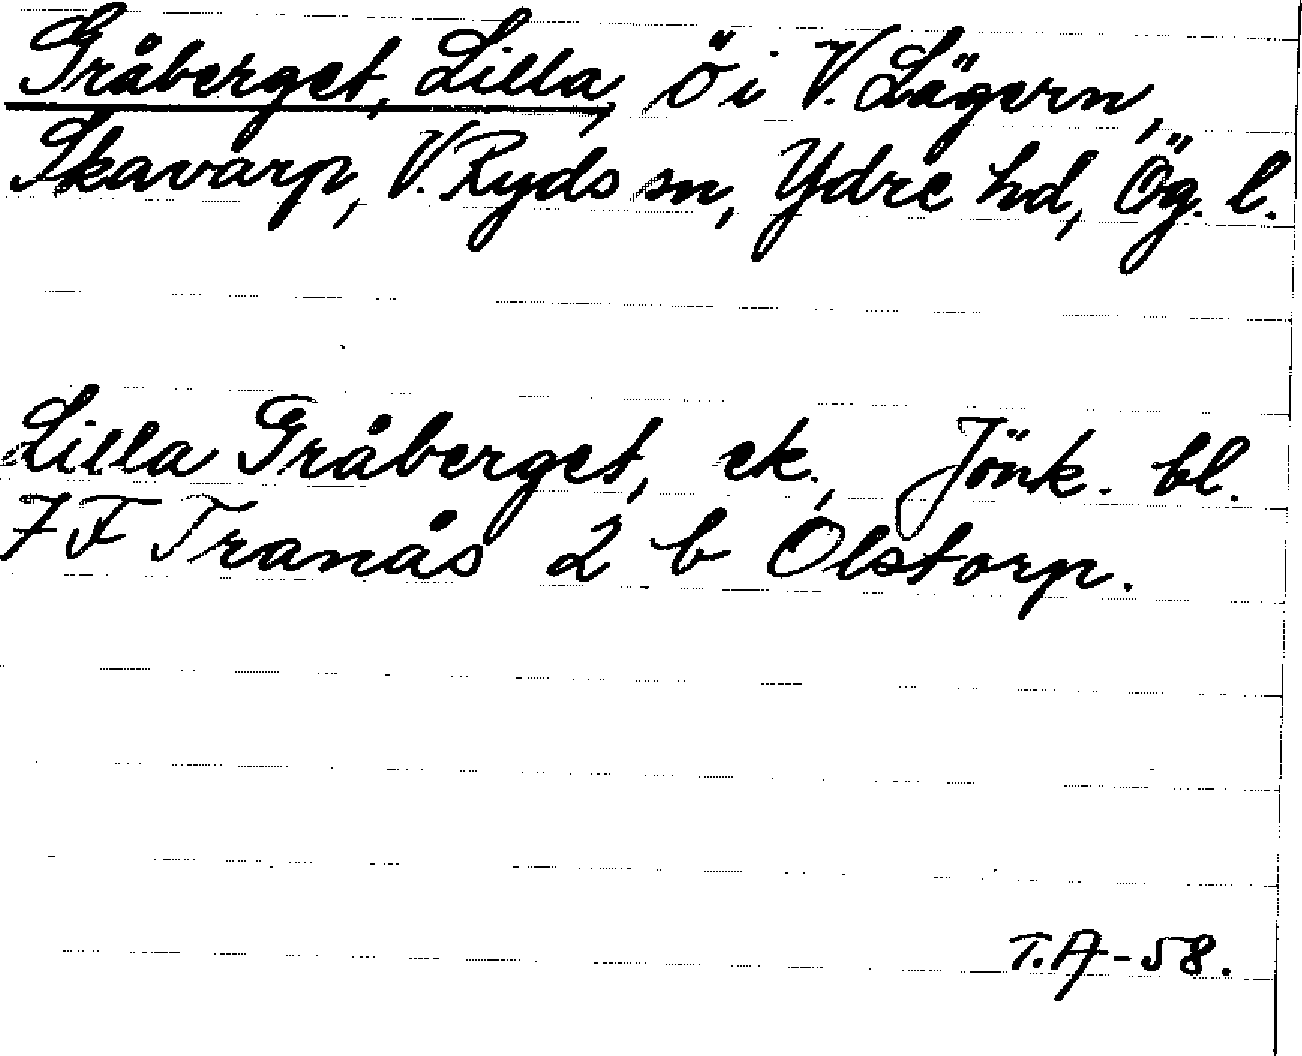 Gråberget, Lilla, ö i V. Lägern,
Skavarp, V. Ryds sn, Ydre hd, Ög. l.
Lilla Gråberget, ek., Jönk. bl.
7 F Tranås 2 b Olstorp.
T.A-58.